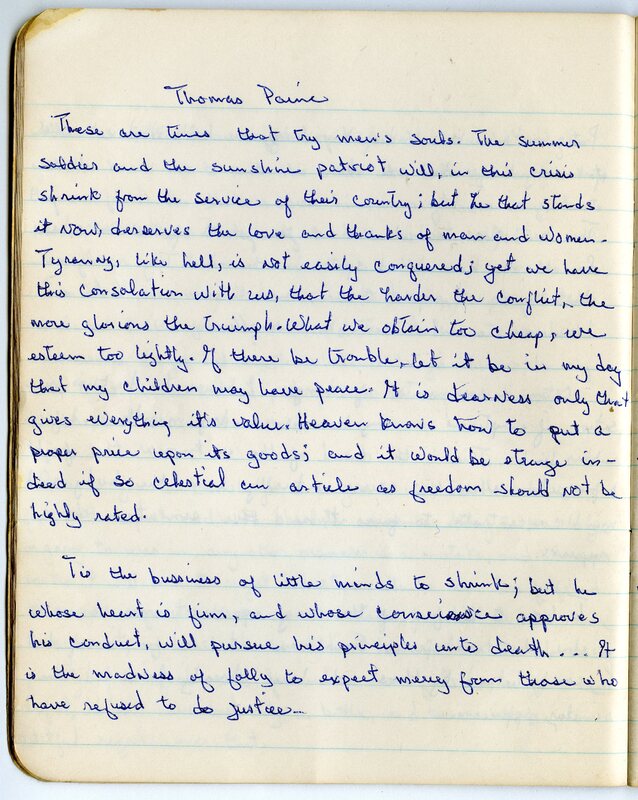 Thomas Paine
These are times that try men's souls. The summer
soldier and the sunshine patriot will, in this crisis
shrink from the service of their country; but he that stands
it now, derserves the love and thanks of man and women.
Tyranny, like hell, is not easily conquered; yet we have
this consolation with us, that the harder the conflict, the
more glorious the triumph. What we obtain too cheap, we
esteem too lightly. If there be trouble, let it be in my day
that my children may have peace. It is dearness only that
gives everything it's value. Heaven knows how to put a
proper price upon its goods; and it would be strange in-
deed if so celestial an article as freedom should not be
highly rated.
Tis the bussiness of little minds to shrink; but he
whose heart is firm, and whose conscience approves
his conduct, will pursue his principles unto death... It
is the madness of folly to expect mercy from those who
have refused to do justice...